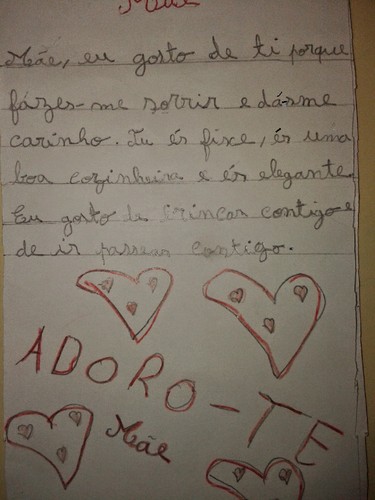 Mãe
Mãe, eu gosto de ti porque
fázes-me sorrir e dás-me
carinho. Tu és fixe, és uma
boa cozinheira e és elegante.
Eu gosto de brincar contigo e
de ir passear contigo.
ADORO-TE
Mãe